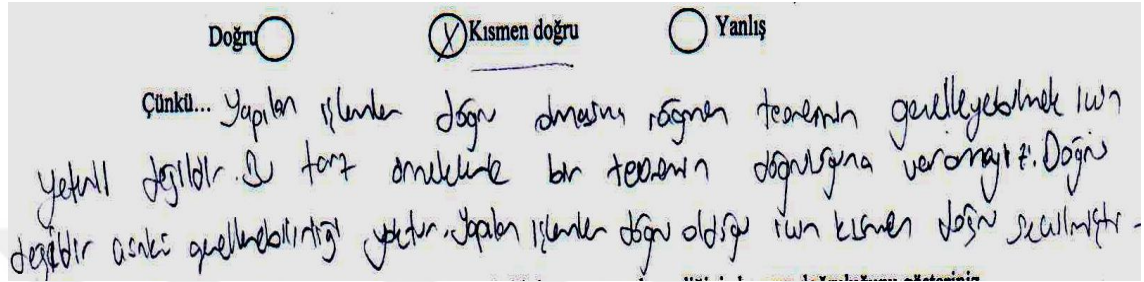 Doğru Kısmen doğru Yanlış
Çünkü... Yapılan işlemler doğru olmasına rağmen teoremin genelleyebilmek için
yeterli değildir. Bu tarz örneklerle bir teoremin doğruluğuna varamayız. Doğru
değildir çünkü genellenebilirliği yoktur. Yapılan işlemler doğru olduğu için kısmen doğru seçilmiştir.
doğruluğunu gösteriniz